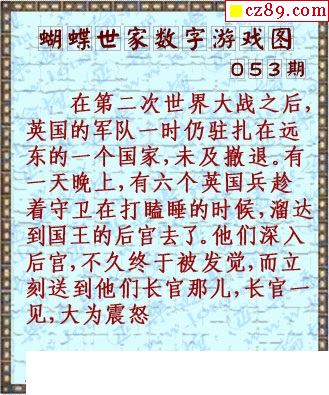 cz89.com
蝴蝶世家数字游戏图
053期
在第二次世界大战之后,
英国的军队一时仍驻扎在远
东的一个国家,未及撤退。有
一天晚上,有六个英国兵趁
着守卫在打瞌睡的时候,溜达
到国王的后宫去了。他们深入
后宫,不久终于被发觉,而立
刻送到他们长官那儿,长官一
见,大为震怒